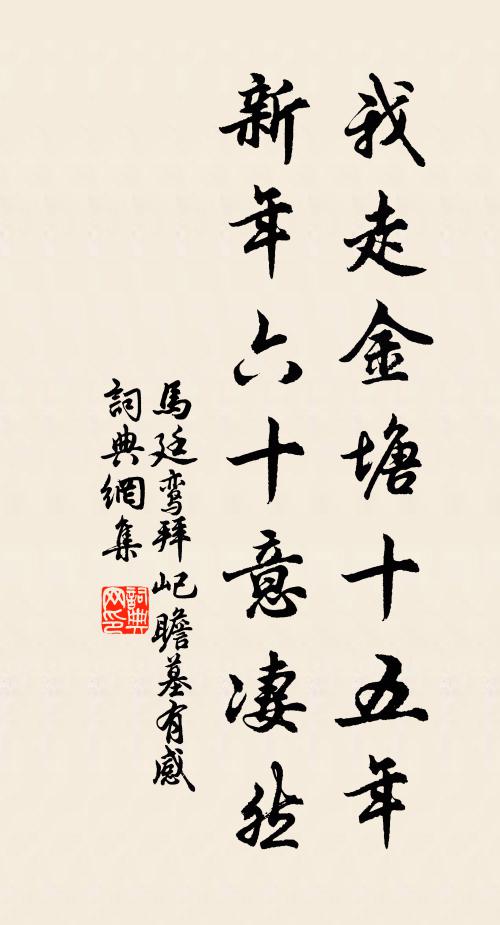 我走金塘十五年
新年六十意凄然
馬廷鸾拜屺瞻墓有感
詞典網集
詞典网印